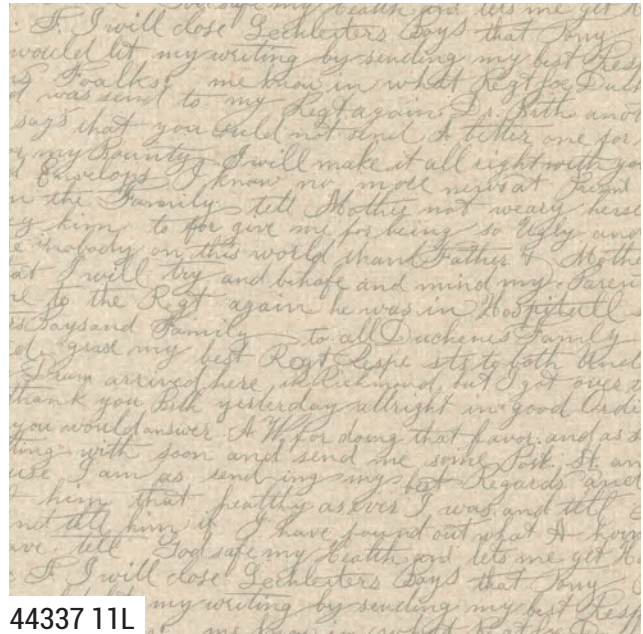 God safe my health and lets me get
F. I will close Lechleiters Boys that Tony
would let my writing by sending my best Resp
Foalks, me know in what Regt Joe Duch
d was send to my Regt again. Dr. Bith anot
says that you could not send A better one for
or my Bounty I will make it all right with yo
d Envelops I know no more news at Present
n the Family tell Mother not weary herse
ey him, to for give me for being so Ugly and
e nobody on this world than Father & Mothe
at I will try and behafe and mind my Paren
re to the Regt again he was in Hospitall
rs Boys and Family to all Duchenes Family
d. grad my best Regt Respe sts to both Und
I am arrived here in Richmond, but I got over s
thank you Bith yesterday allright in good Orde
you would answer. A W. for doing that favor. and as s
ting with soon and send me some Post. St. an
use I am as send-ing my best Regards and
t him that healthy as ever I was, and tell
not tell him it I have found out what A hom
ave. tell God safe my health and lets me get
F. I will close Lechleiters Boys that Tony
would let my writing by sending my best Resp
me know in what Regt Joe Duch
44337 11L